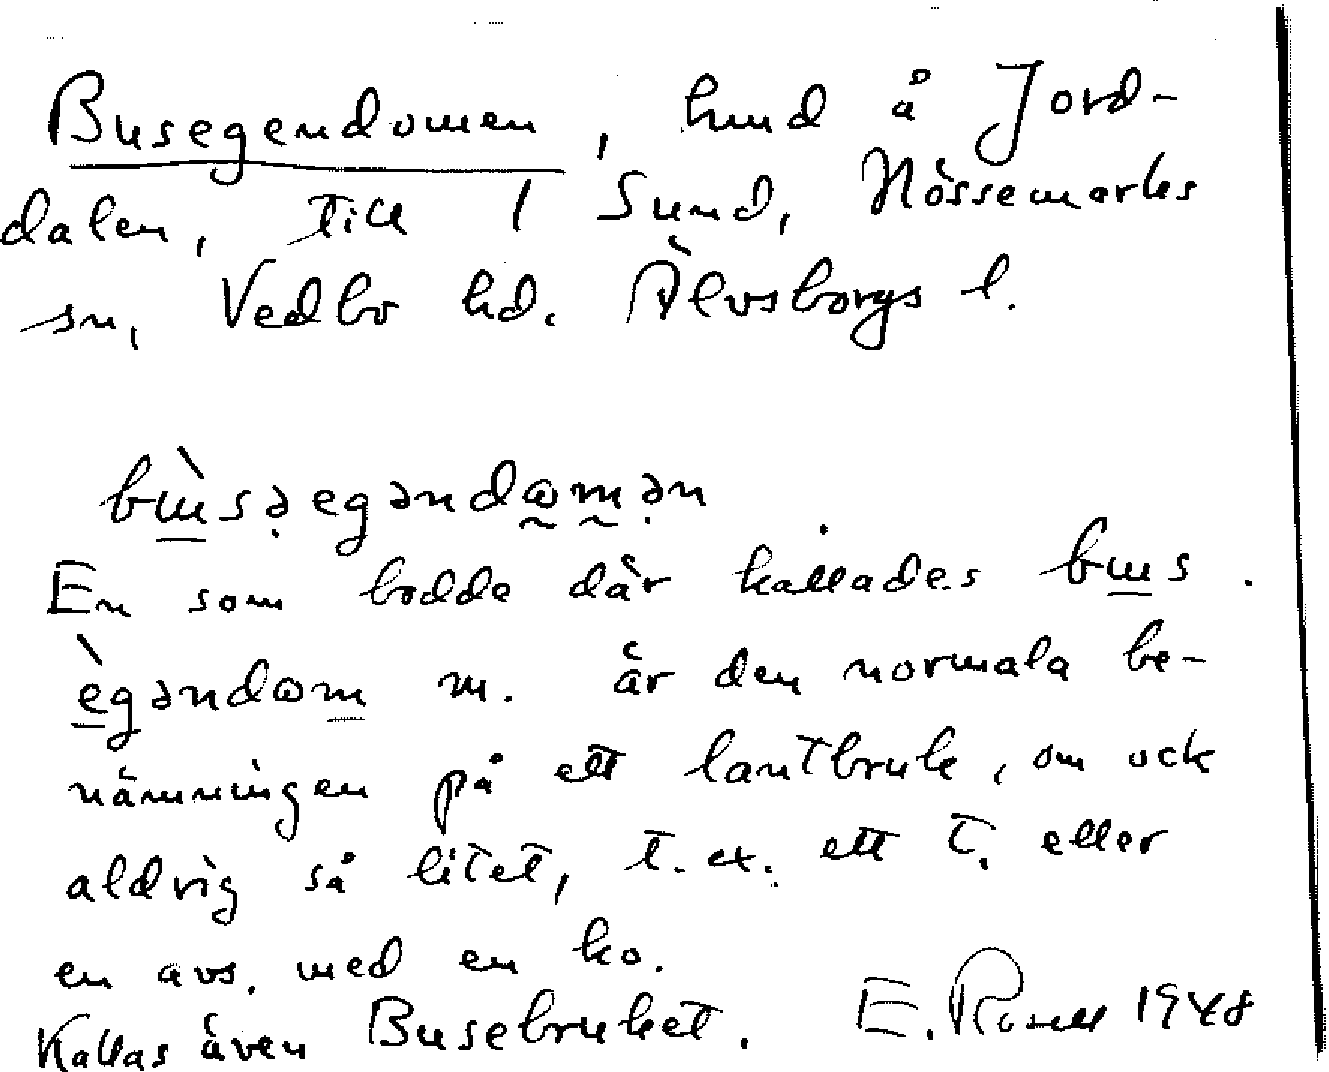 Busegendomen, lund å Jord-
dalen, till 1 Sund, Nössemarks
sn, Vedbo hd. Älvsborgs l.
bɯ̀sə̣egəndωmə̣n
En som bodde där kallades bɯs.
ègəndωm m. är den normala be-
nämningen på ett lantbruk, om ock
aldrig så litet, t. ex. ett t. eller
en avs. med en ko.
Kallas även Busebruket. E. Rosell 1948